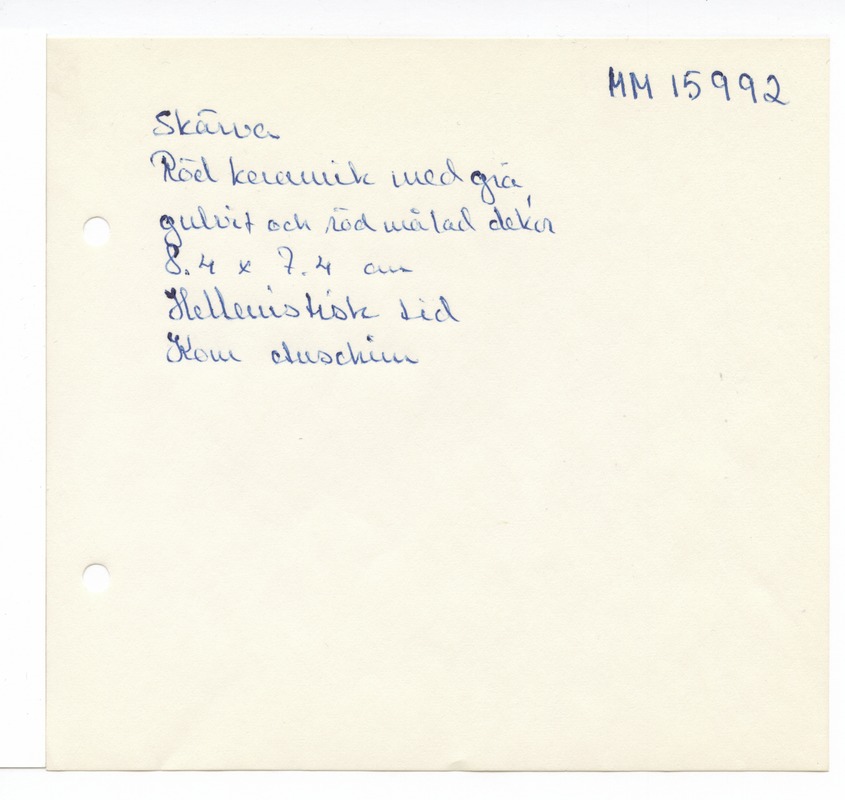 MM 15992
Skärva
Röd keramik med grå,
gulvit och röd målad dekor
8.4 x 7.4 cm
Hellenistisk tid
Kom Auschim